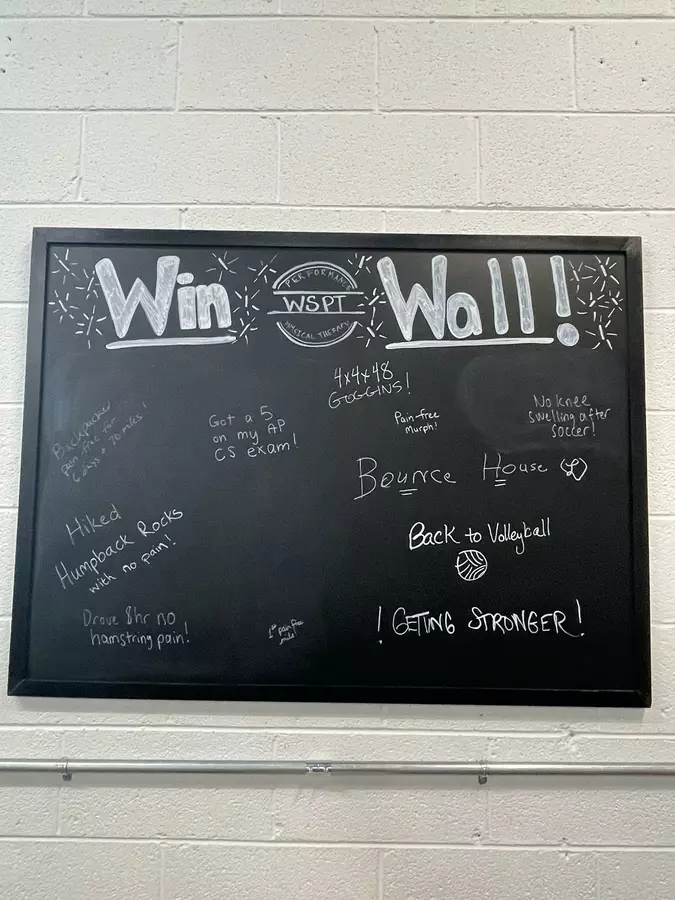 Win
PERFORMANCE
WSPT
PHYSICAL THERAPY
Wall!
4x4x48
GOGGINS!
Backpacked
pain free for
6 days + 70 miles!
Got a 5
on my AP
CS exam!
Pain-free
Murph!
No knee
swelling after
soccer!
Bounce House
Hiked
Humpback Rocks
with no pain!
Back to Volleyball
Drove 8hr no
hamstring pain!
1st pain free
mile!
! GETTING STRONGER!